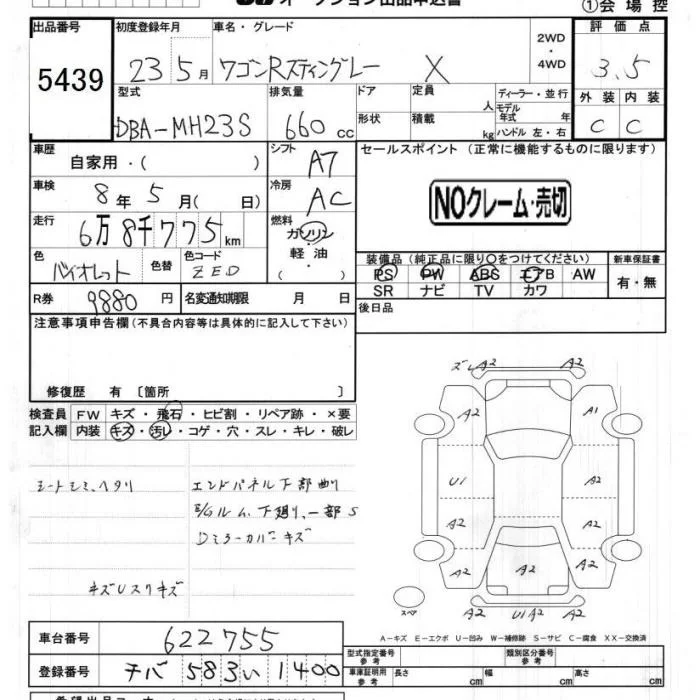 オークション出品申込書
①会場控
出品番号 初度登録年月 車名・グレード 2WD・4WD 評価点
5439 23 5月 ワゴンRスティングレー X 3.5
型式 排気量 ドア 定員 人 ディーラー・並行 外装 内装
DBA-MH23S 660cc 形状 積載 kg モデル年式 年 ハンドル 左・右 C C
車歴 自家用・( ) シフト A7 セールスポイント (正常に機能するものに限ります)
車検 8年 5月( 日) 冷房 AC NOクレーム・売切
走行 6万8千775km 燃料 ガソリン・軽油・( )
色 バイオレット 色替 色コード ZED
装備品 (純正品に限り○をつけてください) 新車保証書
PS PW ABS エアB AW 有・無
SR ナビ TV カワ
R券 9880円 名変通知期限 月 日 後日品
注意事項申告欄(不具合内容等は具体的に記入して下さい)
修復歴 有 〔箇所 〕
検査員 FW キズ・飛石・ヒビ割・リペア跡・×要
記入欄 内装 キズ・汚レ・コゲ・穴・スレ・キレ・破レ
シートシミ、ヘタリ エンドパネル下部曲り
E/Gルム、下廻り、一部S
Dミラーカバーキズ
キズUスリキズ
ズレ A2 A2
A2 A1
U1 A2
A2 A2
A2 A2 A2
A2 U1 A2 A2
スペア
A-キズ E-エクボ U-凹み W-補修跡 S-サビ C-腐食 XX-交換済
車台番号 622755
型式指定番号 参考 類別区分番号 参考
登録番号 チバ 583 い 1400
車庫証明用 参考 長さ cm 幅 cm 高さ cm